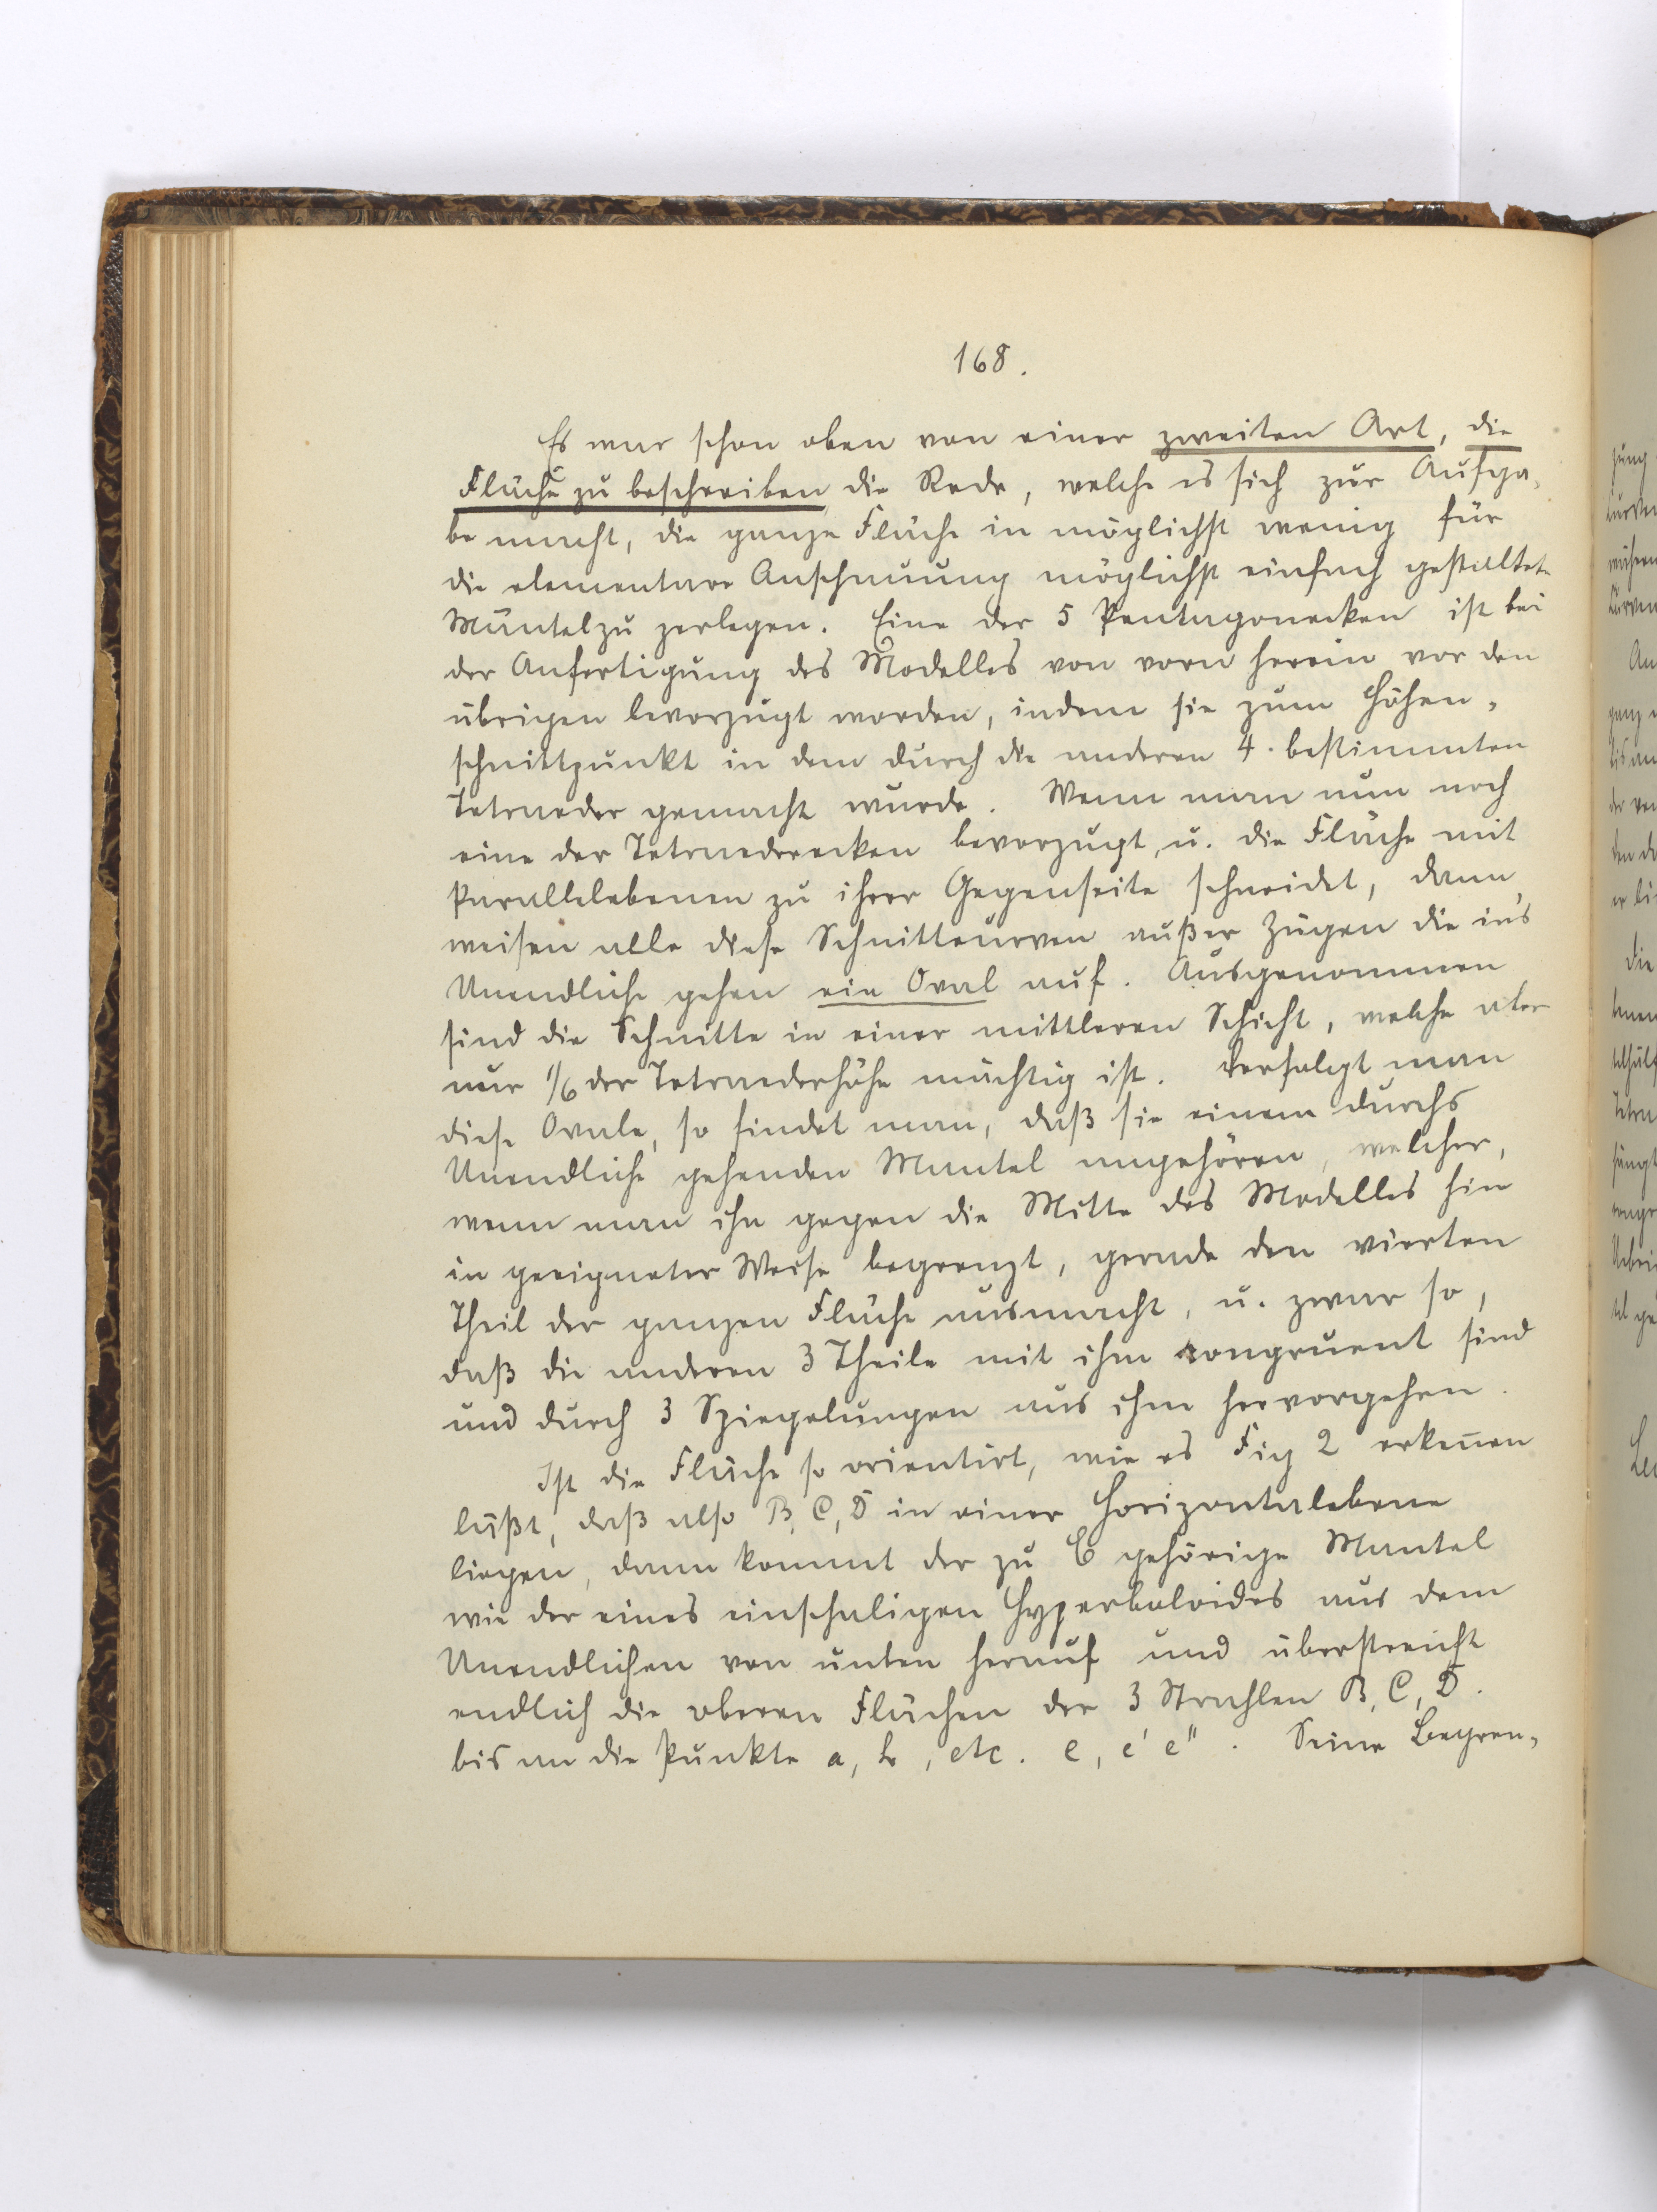 168.
Es war schon oben von einer zweiten Art, die
Fläche zu beschreiben die Rede, welche es sich zur Aufga-
be macht, die ganze Fläche in möglichst wenig für
die elementare Anschauung möglichst einfach gestaltete
Mäntel zu zerlegen. Eine der 5 Pentagonecken ist bei
der Anfertigung des Modelles von vorn herein vor den
übrigen bevorzugt worden, indem sie zum Höhen-
schnittpunkt in dem durch die anderen 4. bestimmten
Tetraeder gemacht wurde. Wenn man nun noch
eine der Tetraederecken bevorzugt, u. die Fläche mit
Parallelebenen zu ihrer Gegenseite schneidet, dann
weisen alle diese Schnittcurven außer Zügen die in's
Unendliche gehen ein Oval auf. Ausgenommen
sind die Schnitte in einer mittleren Schicht, welche aber
nur 1/6 der Tetraederhöhe mächtig ist. Verfolgt man
diese Ovale, so findet man, daß sie einem durchs
Unendliche gehenden Mantel angehören, welcher,
wenn man ihn gegen die Mitte des Modelles hin
in geeigneter Weise begrenzt, gerade den vierten
Theil der ganzen Fläche ausmacht, u. zwar so,
daß die anderen 3 Theile mit ihm congruent sind
und durch 3 Spiegelungen aus ihm hervorgehen.
Ist die Fläche so orientirt, wie es Fig 2 erkennen
läßt, daß also B, C, D in einer Horizontalebene
liegen, dann kommt der zu E gehörige Mantel
wie der eines einschaligen Hyperboloides aus dem
Unendlichen von unten herauf und überstreicht
endlich die oberen Flächen der 3 Strahlen B, C, D.
bis an die Punkte a, b, etc. e, e' e". Seine Begren-